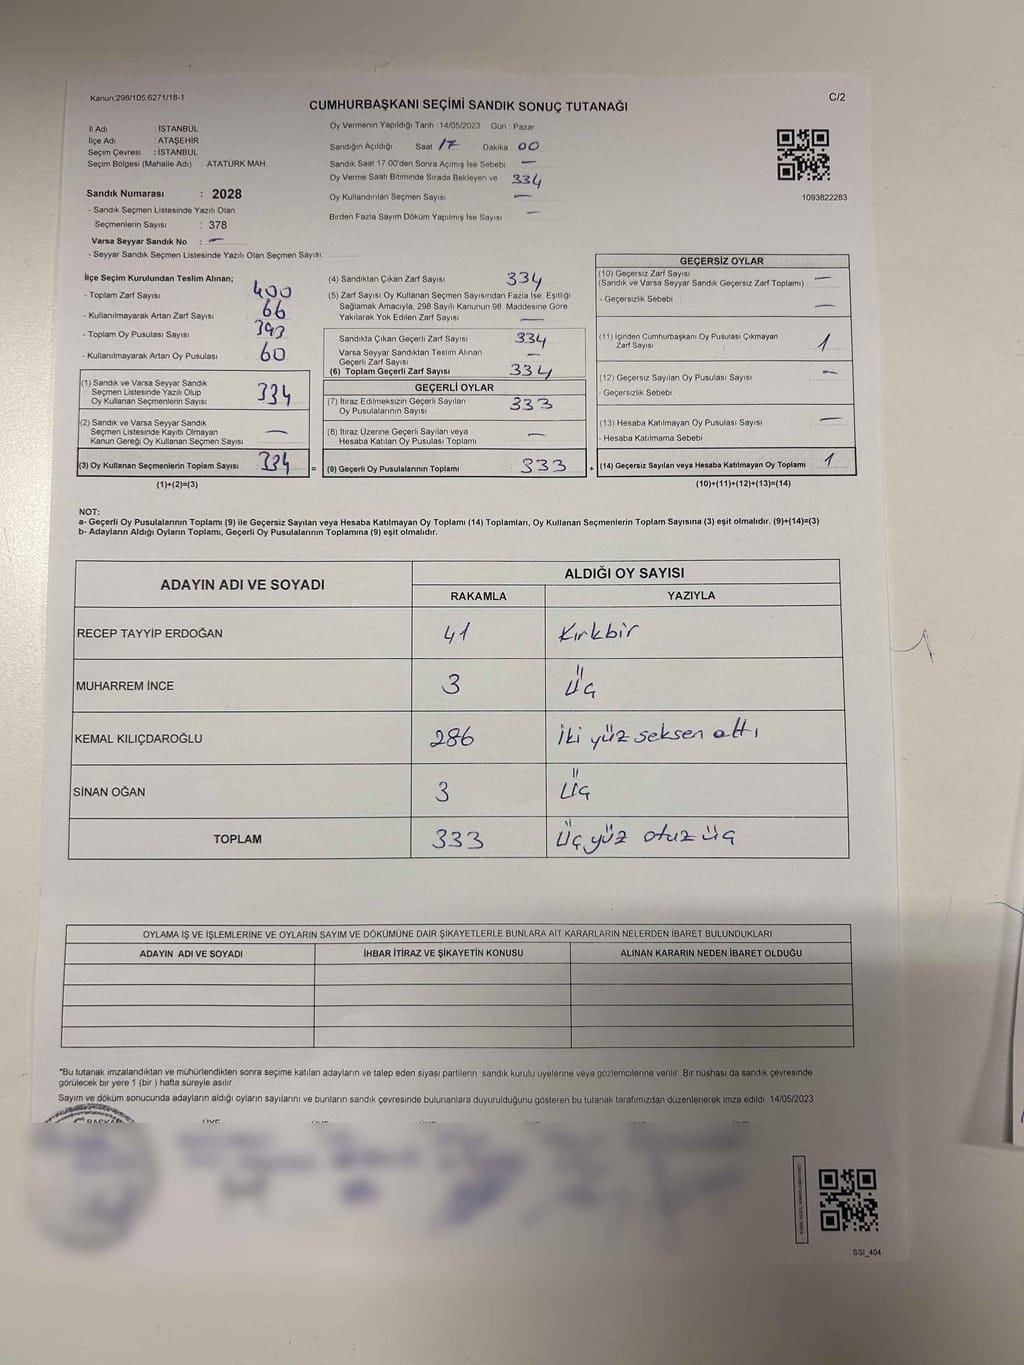 Kanun:298/105,6271/18-1
C/2
CUMHURBAŞKANI SEÇİMİ SANDIK SONUÇ TUTANAĞI
İl Adı : İSTANBUL
İlçe Adı : ATAŞEHİR
Seçim Çevresi : İSTANBUL
Seçim Bölgesi (Mahalle Adı) : ATATÜRK MAH.
Sandık Numarası : 2028
- Sandık Seçmen Listesinde Yazılı Olan
Seçmenlerin Sayısı : 378
Varsa Seyyar Sandık No : —
- Seyyar Sandık Seçmen Listesinde Yazılı Olan Seçmen Sayısı:
Oy Vermenin Yapıldığı Tarih : 14/05/2023 Gün : Pazar
Sandığın Açıldığı Saat 17 Dakika 00
Sandık Saat 17.00'den Sonra Açımış İse Sebebi —
Oy Verme Saati Bitiminde Sırada Bekleyen ve 334
Oy Kullandırılan Seçmen Sayısı —
Birden Fazla Sayım Döküm Yapılmış İse Sayısı —
1093822283
İlçe Seçim Kurulundan Teslim Alınan;
- Toplam Zarf Sayısı 400
- Kullanılmayarak Artan Zarf Sayısı 66
- Toplam Oy Pusulası Sayısı
- Kullanılmayarak Artan Oy Pusulası 60
(1) Sandık ve Varsa Seyyar Sandık
Seçmen Listesinde Yazılı Olup
Oy Kullanan Seçmenlerin Sayısı 334
(2) Sandık ve Varsa Seyyar Sandık
Seçmen Listesinde Kayıtlı Olmayan
Kanun Gereği Oy Kullanan Seçmen Sayısı —
(3) Oy Kullanan Seçmenlerin Toplam Sayısı 334
(1)+(2)=(3)
(4) Sandıktan Çıkan Zarf Sayısı 334
(5) Zarf Sayısı Oy Kullanan Seçmen Sayısından Fazla İse, Eşitliği
Sağlamak Amacıyla, 298 Sayılı Kanunun 98. Maddesine Göre
Yakılarak Yok Edilen Zarf Sayısı —
Sandıkta Çıkan Geçerli Zarf Sayısı 334
Varsa Seyyar Sandıktan Teslim Alınan
Geçerli Zarf Sayısı —
(6) Toplam Geçerli Zarf Sayısı 334
GEÇERLİ OYLAR
(7) İtiraz Edilmeksizin Geçerli Sayılan
Oy Pusulalarının Sayısı 333
(8) İtiraz Üzerine Geçerli Sayılan veya
Hesaba Katılan Oy Pusulası Toplamı —
= (9) Geçerli Oy Pusulalarının Toplamı 333 +
GEÇERSİZ OYLAR
(10) Geçersiz Zarf Sayısı —
(Sandık ve Varsa Seyyar Sandık Geçersiz Zarf Toplamı)
- Geçersizlik Sebebi : —
(11) İçinden Cumhurbaşkanı Oy Pusulası Çıkmayan
Zarf Sayısı 1
(12) Geçersiz Sayılan Oy Pusulası Sayısı —
- Geçersizlik Sebebi :
(13) Hesaba Katılmayan Oy Pusulası Sayısı —
- Hesaba Katılmama Sebebi :
(14) Geçersiz Sayılan veya Hesaba Katılmayan Oy Toplamı 1
(10)+(11)+(12)+(13)=(14)
NOT:
a- Geçerli Oy Pusulalarının Toplamı (9) ile Geçersiz Sayılan veya Hesaba Katılmayan Oy Toplamı (14) Toplamları, Oy Kullanan Seçmenlerin Toplam Sayısına (3) eşit olmalıdır. (9)+(14)=(3)
b- Adayların Aldığı Oyların Toplamı, Geçerli Oy Pusulalarının Toplamına (9) eşit olmalıdır.
ADAYIN ADI VE SOYADI
ALDIĞI OY SAYISI
RAKAMLA YAZIYLA
RECEP TAYYİP ERDOĞAN 41 Kırkbir
MUHARREM İNCE 3 Üç
KEMAL KILIÇDAROĞLU 286 İki yüz seksen altı
SİNAN OĞAN 3 Üç
TOPLAM 333 Üç yüz otuz üç
OYLAMA İŞ VE İŞLEMLERİNE VE OYLARIN SAYIM VE DÖKÜMÜNE DAİR ŞİKAYETLERLE BUNLARA AİT KARARLARIN NELERDEN İBARET BULUNDUKLARI
ADAYIN ADI VE SOYADI İHBAR İTİRAZ VE ŞİKAYETİN KONUSU ALINAN KARARIN NEDEN İBARET OLDUĞU
*Bu tutanak imzalandıktan ve mühürlendikten sonra seçime katılan adayların ve talep eden siyasi partilerin sandık kurulu üyelerine veya gözlemcilerine verilir. Bir nüshası da sandık çevresinde
görülecek bir yere 1 (bir ) hafta süreyle asılır.
Sayım ve döküm sonucunda adayların aldığı oyların sayılarını ve bunların sandık çevresinde bulunanlara duyurulduğunu gösteren bu tutanak tarafımızdan düzenlenerek imza edildi. 14/05/2023
SSI_404